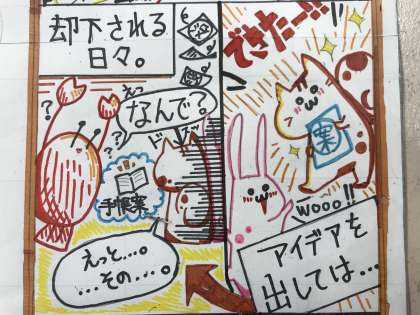 できたー!!
案
wooo!!
アイデアを
出しては…
却下される
日々。
えっ
なんで?
?
?
?
手帳案
えっと…。
…その…。